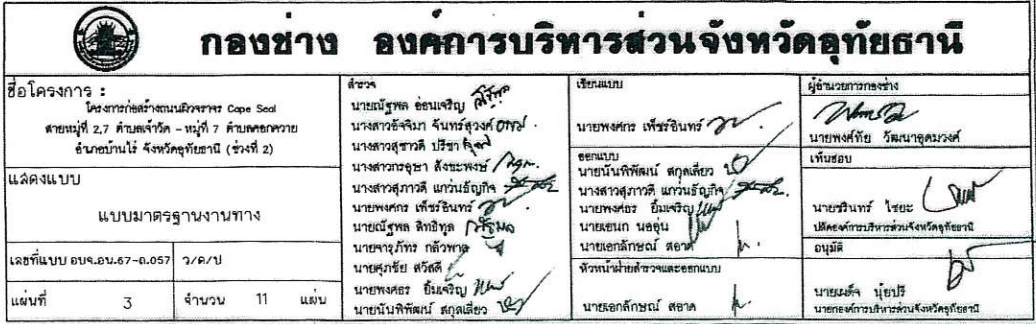 กองช่าง องค์การบริหารส่วนจังหวัดอุทัยธานี
ชื่อโครงการ :
โครงการก่อสร้างถนนผิวจราจร Cape Seal
สายหมู่ที่ 2,7 ตำบลเจ้าวัด - หมู่ที่ 7 ตำบลคอกควาย
อำเภอบ้านไร่ จังหวัดอุทัยธานี (ช่วงที่ 2)
แสดงแบบ
แบบมาตรฐานงานทาง
เลขที่แบบ อบจ.อน.67-ถ.057 ว/ด/ป
แผ่นที่ 3 จำนวน 11 แผ่น
สำรวจ
นายณัฐพล อ่อนเจริญ
นางสาวอัจจิมา จันทร์สุวงศ์
นางสาวสุชาวดี ปรีชา
นางสาวกรอุษา สังขะพงษ์
นางสาวสุภาวดี แกว่นธัญกิจ
นายพงศกร เพ็ชร์อินทร์
นายณัฐพล สิทธิทูล
นายจารุภัทร กลัวพาล
นายศุภชัย สวัสดี
นายพงศธร ยิ้มเจริญ
นายนันพิพัฒน์ สกุลเลี่ยว
เขียนแบบ
นายพงศกร เพ็ชร์อินทร์
ออกแบบ
นายนันพิพัฒน์ สกุลเลี่ยว
นางสาวสุภาวดี แกว่นธัญกิจ
นายพงศธร ยิ้มเจริญ
นายเอนก นออุ่น
นายเอกลักษณ์ สอาด
หัวหน้าฝ่ายสำรวจและออกแบบ
นายเอกลักษณ์ สอาด
ผู้อำนวยการกองช่าง
นายพงศ์ทัย วัฒนาอุดมวงศ์
เห็นชอบ
นายชรินทร์ ไชยะ
ปลัดองค์การบริหารส่วนจังหวัดอุทัยธานี
อนุมัติ
นายเผด็จ นุ้ยปรี
นายกองค์การบริหารส่วนจังหวัดอุทัยธานี